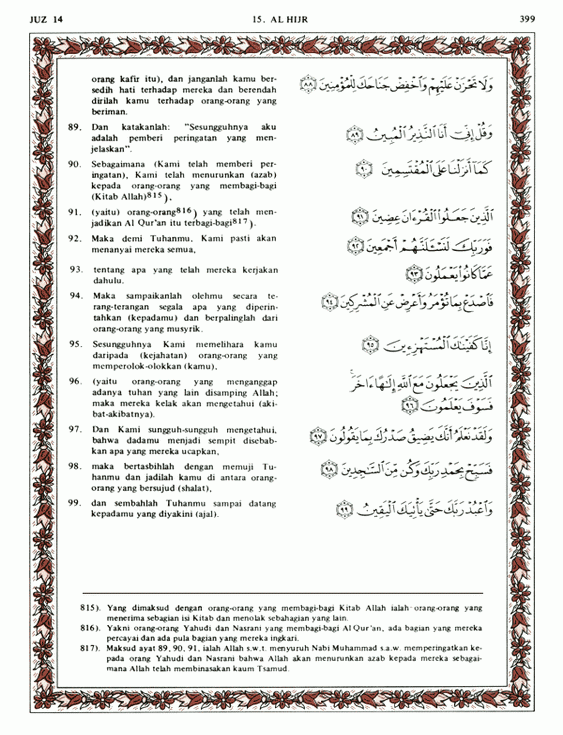 JUZ 14
15. AL HIJR
399
orang kafir itu), dan janganlah kamu ber-
sedih hati terhadap mereka dan berendah
dirilah kamu terhadap orang-orang yang
beriman.
89. Dan katakanlah: "Sesungguhnya aku
adalah pemberi peringatan yang men-
jelaskan".
90. Sebagaimana (Kami telah memberi per-
ingatan), Kami telah menurunkan (azab)
kepada orang-orang yang membagi-bagi
(Kitab Allah)815),
91. (yaitu) orang-orang816) yang telah men-
jadikan Al Qur'an itu terbagi-bagi817).
92. Maka demi Tuhanmu, Kami pasti akan
menanyai mereka semua,
93. tentang apa yang telah mereka kerjakan
dahulu.
94. Maka sampaikanlah olehmu secara te-
rang-terangan segala apa yang diperin-
tahkan (kepadamu) dan berpalinglah dari
orang-orang yang musyrik.
95. Sesungguhnya Kami memelihara kamu
daripada (kejahatan) orang-orang yang
memperolok-olokkan (kamu),
96. (yaitu orang-orang yang menganggap
adanya tuhan yang lain disamping Allah;
maka mereka kelak akan mengetahui (aki-
bat-akibatnya).
97. Dan Kami sungguh-sungguh mengetahui,
bahwa dadamu menjadi sempit disebab-
kan apa yang mereka ucapkan,
98. maka bertasbihlah dengan memuji Tu-
hanmu dan jadilah kamu di antara orang-
orang yang bersujud (shalat),
99. dan sembahlah Tuhanmu sampai datang
kepadamu yang diyakini (ajal).
وَلَا تَحْزَنْ عَلَيْهِمْ وَٱخْفِضْ جَنَاحَكَ لِلْمُؤْمِنِينَ ٨٨
وَقُلْ إِنِّىٓ أَنَا ٱلنَّذِيرُ ٱلْمُبِينُ ٨٩
كَمَآ أَنزَلْنَا عَلَى ٱلْمُقْتَسِمِينَ ٩٠
ٱلَّذِينَ جَعَلُوا۟ ٱلْقُرْءَانَ عِضِينَ ٩١
فَوَرَبِّكَ لَنَسْـَٔلَنَّهُمْ أَجْمَعِينَ ٩٢
عَمَّا كَانُوا۟ يَعْمَلُونَ ٩٣
فَٱصْدَعْ بِمَا تُؤْمَرُ وَأَعْرِضْ عَنِ ٱلْمُشْرِكِينَ ٩٤
إِنَّا كَفَيْنَٰكَ ٱلْمُسْتَهْزِءِينَ ٩٥
ٱلَّذِينَ يَجْعَلُونَ مَعَ ٱللَّهِ إِلَٰهًا ءَاخَرَ
فَسَوْفَ يَعْلَمُونَ ٩٦
وَلَقَدْ نَعْلَمُ أَنَّكَ يَضِيقُ صَدْرُكَ بِمَا يَقُولُونَ ٩٧
فَسَبِّحْ بِحَمْدِ رَبِّكَ وَكُن مِّنَ ٱلسَّٰجِدِينَ ٩٨
وَٱعْبُدْ رَبَّكَ حَتَّىٰ يَأْتِيَكَ ٱلْيَقِينُ ٩٩
815). Yang dimaksud dengan orang-orang yang membagi-bagi Kitab Allah ialah orang-orang yang
menerima sebagian isi Kitab dan menolak sebahagian yang lain.
816). Yakni orang-orang Yahudi dan Nasrani yang membagi-bagi Al Qur'an, ada bagian yang mereka
percayai dan ada pula bagian yang mereka ingkari.
817). Maksud ayat 89, 90, 91, ialah Allah s.w.t. menyuruh Nabi Muhammad s.a.w. memperingatkan ke-
pada orang Yahudi dan Nasrani bahwa Allah akan menurunkan azab kepada mereka sebagai-
mana Allah telah membinasakan kaum Tsamud.